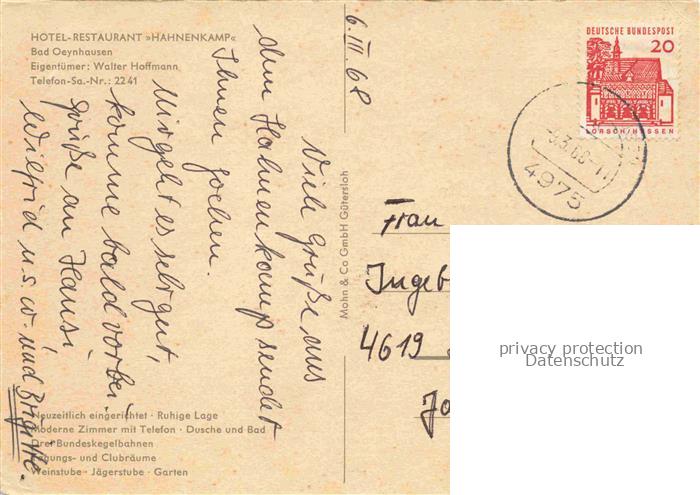 HOTEL-RESTAURANT »HAHNENKAMP«
Bad Oeynhausen
Eigentümer: Walter Hoffmann
Telefon-Sa.-Nr.: 2241
6. III. 68
Viele Grüße aus
dem Hahnenkamp sendet
Ihnen Jochen.
Mir geht es sehr gut,
komme bald vorbei.
Grüße an Hansi
Wilfrid u.s.w. und Brigitte.
Neuzeitlich eingerichtet · Ruhige Lage
Moderne Zimmer mit Telefon · Dusche und Bad
Drei Bundeskegelbahnen
Tagungs- und Clubräume
Weinstube · Jägerstube · Garten
Mohn & Co GmbH Gütersloh
DEUTSCHE BUNDESPOST
20
LORSCH/HESSEN
4975
Frau
Ingeb
4619
Jo
privacy protection
Datenschutz